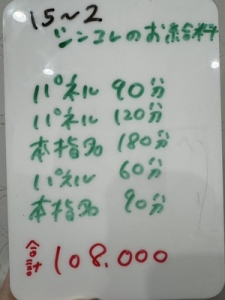 15〜2
シンコレのお給料
パネル 90分
パネル 120分
本指名 180分
パネル 60分
本指名 90分
合計 108.000